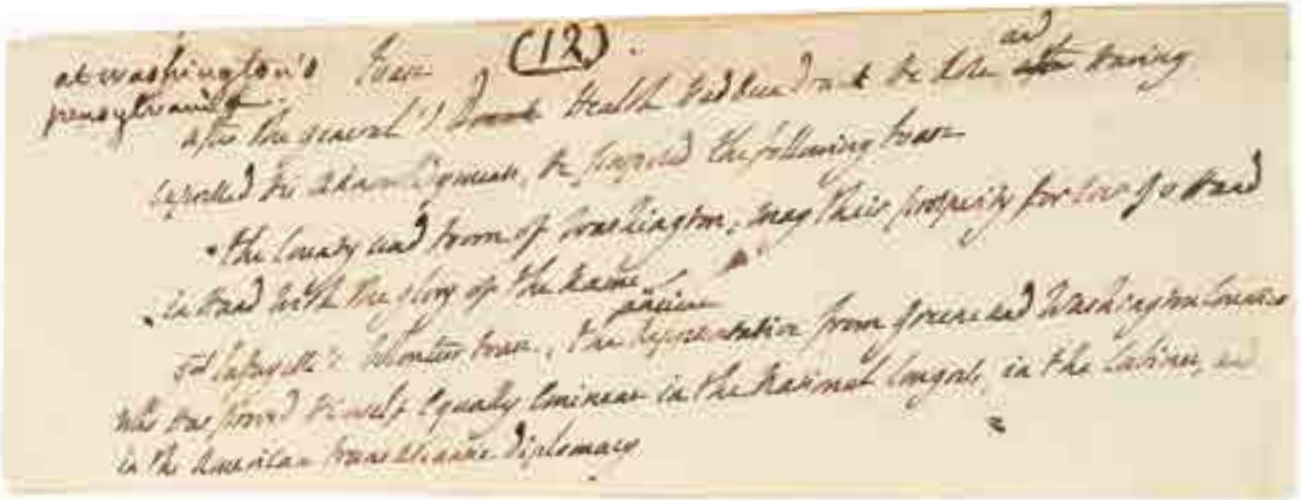 (12).
at washington's Toast
pensylvania.
after the general's Health had been drank he rose and having
expressed his acknowledgments, he proposed the following toast
the County and town of Washington; may their prosperity for ever go Hand
in Hand with the glory of the Name
G^al Lafayette's Volunteer toast, The ancient Representative from green and Washington Counties
who has proved himself equally eminent in the National Congress, in the Cabinet, and
in the American transatlantic diplomacy